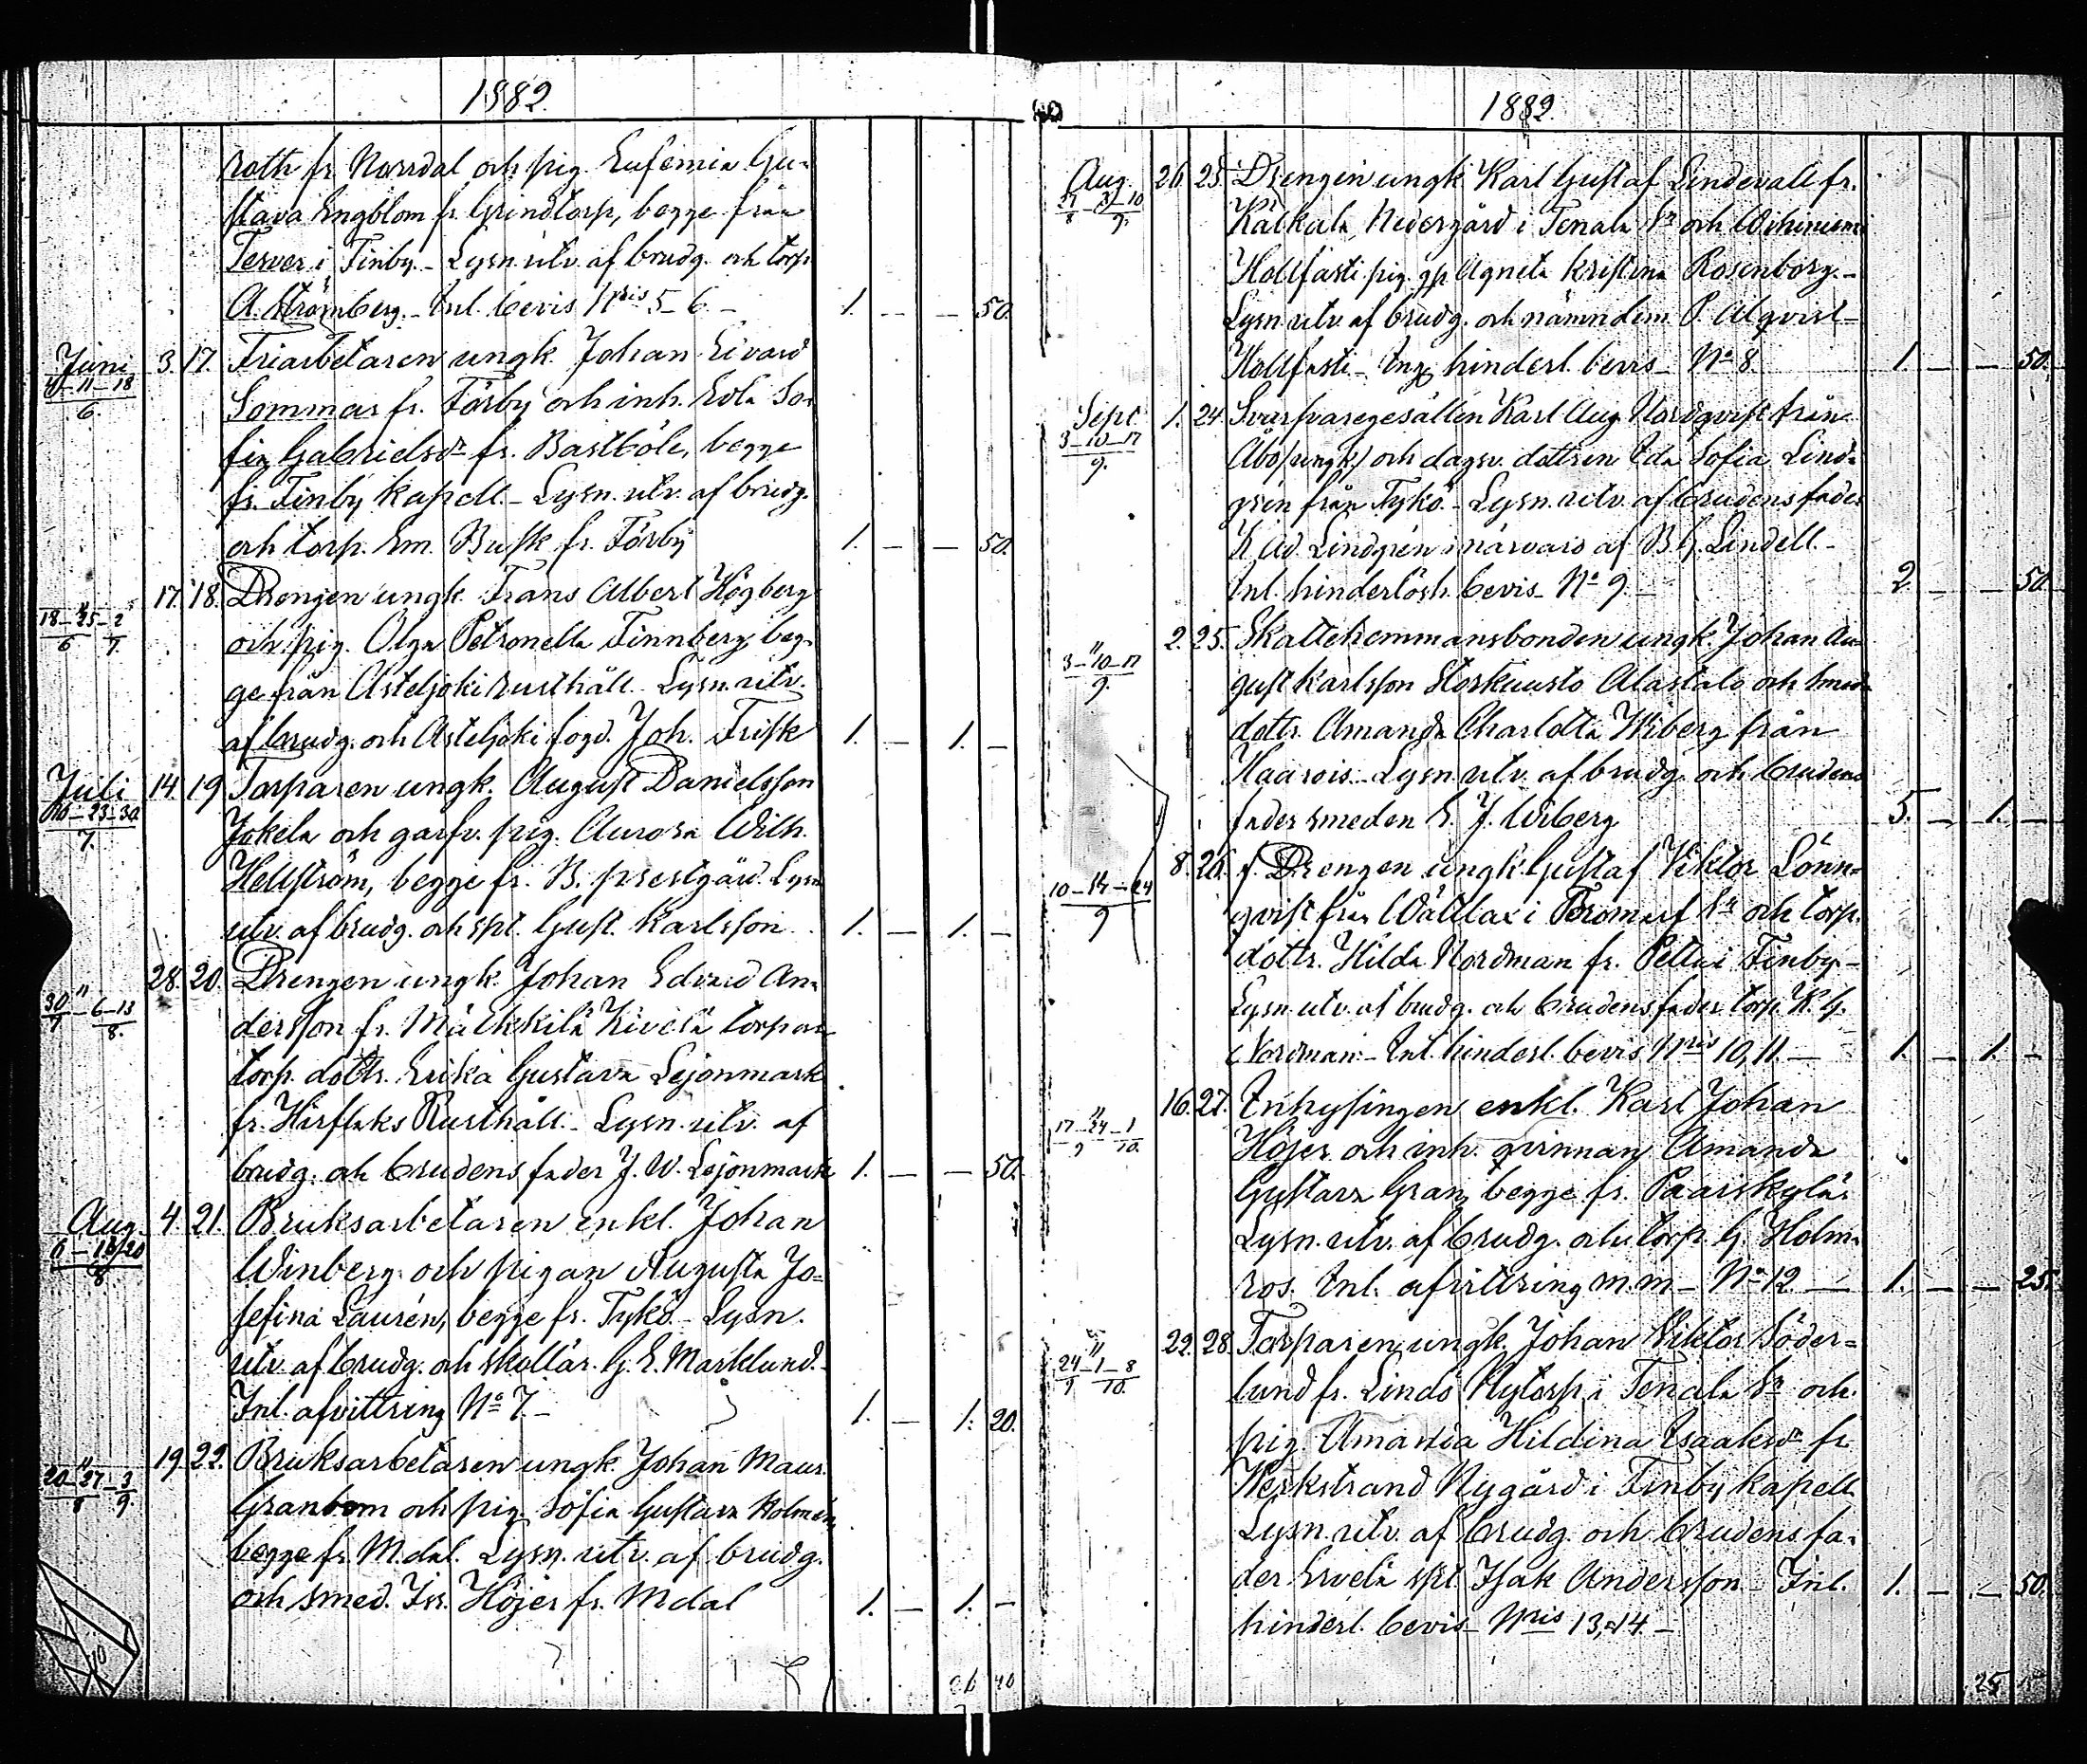 1882
roth fr. Norrdal och pig. Eufemia Gu-
stava Engblom fr. Grindtorp, begge från
Tesver i Finby. - Lysn. utv. af brudg. och torp.
A. Strömberg. - Inl. bevis Nris 5-6 - 1. — — 50.
Juni 3. 17. Friarbetaren ungk. Johan Edvard
4-11-18
6.
Sommar fr. Förby och inh. Edla So-
fia Gabrielsdr fr. Bastböle, begge
fr. Finby Kapell. - Lysn. utv. af brudg.
och torp. Em. Busk fr. Förby 1. — — 50.
" 17. 18. Drengen ungk. Frans Albert Högberg
18-25-2
6 7
och pig. Olga Petronella Finnberg, beg-
ge från Asteljoki rusthåll. Lysn. utv.
af brudg. och Asteljoki fogd. Joh. Frisk 1. — 1. —
Juli 14. 19. Torparen ungk. August Danielsson
16-23-30
7.
Jokela och garfv. pig. Aurora Wilh.
Hellström, begge fr. B. prestgård. Lysn.
utv. af brudg. och spt. Gust. Karlsson 1. — 1. —
" 28. 20. Drengen ungk. Johan Edvard An-
30-6-13
7 8.
dersson fr. Kivelä torp och
torp. dottr. Erika Gustava Lejonmark
fr. Rusthåll. - Lysn. utv. af
brudg. och brudens fader J. W. Lejonmark 1. — — 50.
Aug. 4. 21. Bruksarbetaren enkl. Johan
6-13-20
8
Winberg och pigan Augusta Jo-
sefina Laurén, begge fr. Tykö. - Lysn.
utv. af brudg. och skollär. G. E. Marklund. -
Inl. afvittring No 7. - 1. — 1. 20.
" 19. 22. Bruksarbetaren ungk. Johan Maur.
20-27-3
8 9.
Granbom och pig. Sofia Gustava Holmén,
begge fr. M.dal. Lysn. utv. af brudg.
och smed. Höjer fr. M.dal 1. — 1. —
1882
Aug. 26. 23. Drengen ungk. Karl Gustaf Lindevall fr.
27-3-10
8 9.
Kålkala Nedergård i Tenala Sn och
Hollfasti pig. Agneta Kristina Rosenborg. -
Lysn. utv. af brudg. och nämndem. P. Alqvist -
Hollfasti - Ing. hinderl. bevis - No 8. 1. — — 50.
Sept. 1. 24. Svarfvaregesällen Karl Aug. Nordqvist från
3-10-17
9.
Åbo (ungk.) och dagsv. dottren Ida Sofia Lind-
grén från Tykö. - Lysn. utv. af brudens fader
K. Ad. Lindgrén i närvaro af B. G. Lindell. -
Inl. hinderlösh. bevis - No 9. - 2. — — 50.
" 2. 25. Skattehemmansbonden ungk. Johan Au-
3-10-17
9.
gust Karlsson Storkuusto Alastalo och smed.
dottr. Amanda Charlotta Wiberg från
Haarois. - Lysn. utv. af brudg. och brudens
fader smeden E. J. Wiberg 5. — 1. —
8. 26. f. Drengen ungk. Gustaf Viktor Lönn-
10-17-24
9
qvist från Wättlax i Bromarf Sn och torp.
dottr. Hilda Nordman fr. Pettu i Finby -
Lysn. utv. af brudg. och brudens fader torp. K. G.
Nordman - Inl. hinderl. bevis Nris 10, 11. — 1. — 1. —
" 16. 27. Inhysingen enkl. Karl Johan
17-24-1
9 10.
Höjer och inh. qvinnan Amanda
Gustava Gran, begge fr. Paarskylä.
Lysn. utv. af brudg. och torp. G. Holm-
ros. Inl. afvittring m.m - No 12 — 1. — — 25.
" 22. 28. Torparen ungk. Johan Viktor Söder-
24-1-8
9 10.
lund fr. Lindö Nytorp i Tenala Sn och
pig. Amanda Hildina Isaaksdr fr.
Werkstrand Nygård i Finby kapell.
Lysn. utv. af brudg. och brudens fa-
der spt. Isak Andersson - Inl. 1. — — 50.
hinderl. bevis - Nris 13, 14. -